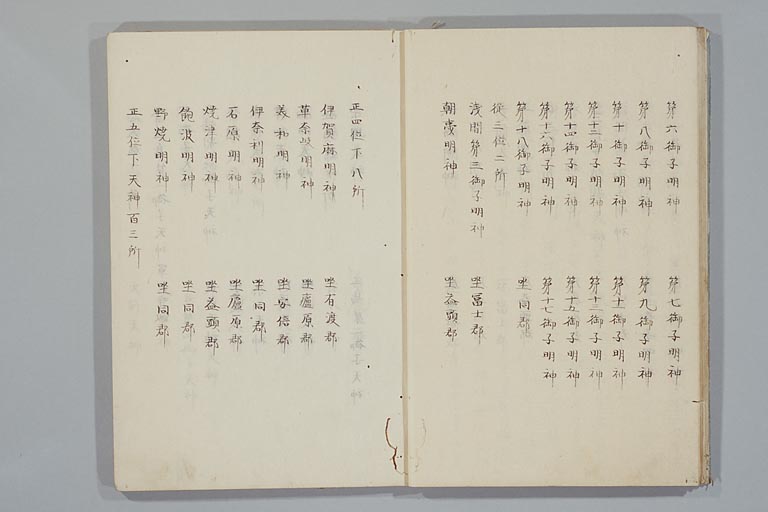 第六御子明神 第七御子明神
第八御子明神 第九御子明神
第十御子明神 第十一御子明神
第十二御子明神 第十三御子明神
第十四御子明神 第十五御子明神
第十六御子明神 第十七御子明神
第十八御子明神 坐同郡
従三位二所
浅間第三御子明神 坐冨士郡
朝夷明神 坐益頭郡
正四位下八所
伊賀麻明神 坐有渡郡
草奈岐明神 坐廬原郡
美和明神 坐安倍郡
伊奈利明神 坐同郡
石原明神 坐廬原郡
焼津明神 坐益頭郡
飽波明神 坐同郡
野焼明神 坐同郡
正五位下天神百三所